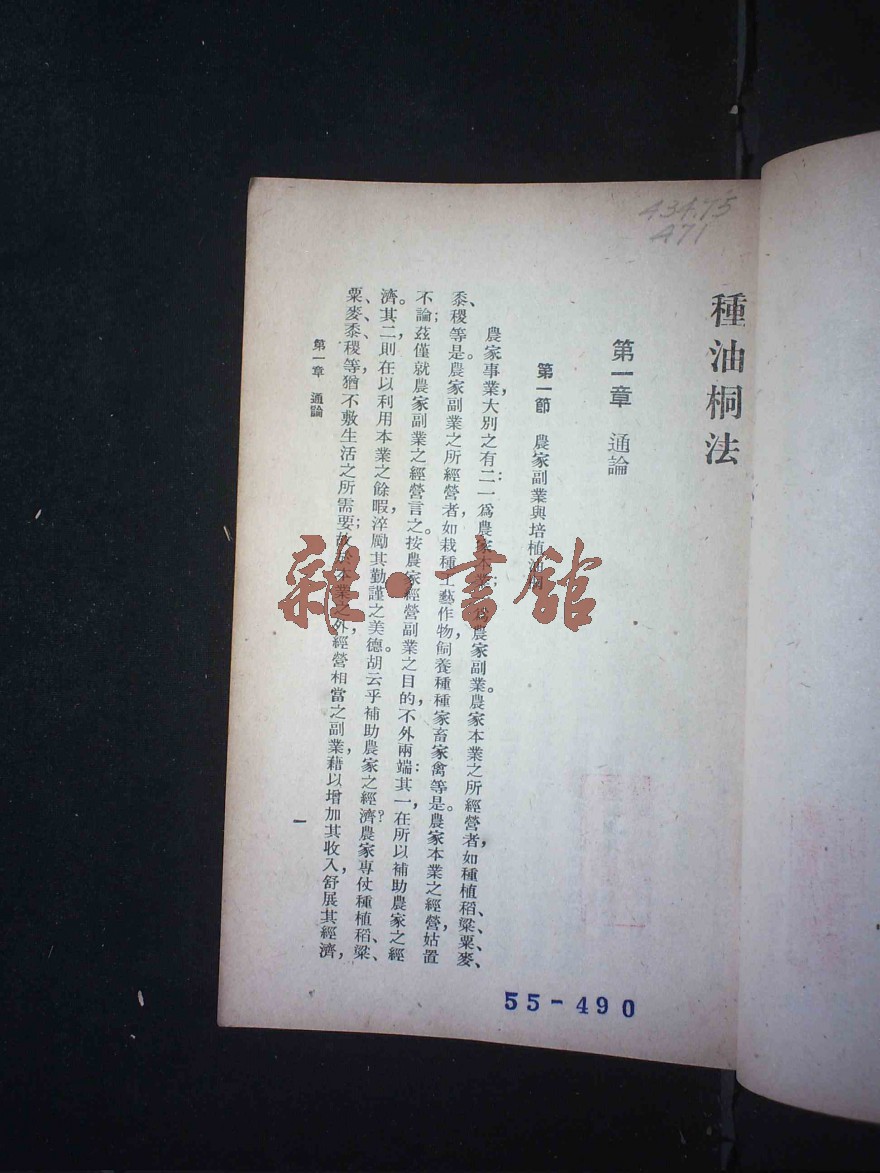 434.75
471
種油桐法
第一章　通論
第一節　農家副業與培植油桐
農家事業，大別之有二：一爲農家本業；一爲農家副業。農家本業之所經營者，如種植稻、粱、粟、麥、
黍、稷等是。農家副業之所經營者，如栽種工藝作物，飼養種種家畜家禽等是。農家本業之經營，姑置
不論；茲僅就農家副業之經營言之。按農家經營副業之目的，不外兩端：其一，在所以補助農家之經
濟。其二，則在以利用本業之餘暇，淬勵其勤謹之美德。胡云乎補助農家之經濟？農家專仗種植稻、粱、
粟、麥、黍、稷等，猶不敷生活之所需要；故於本業之外，經營相當之副業，藉以增加其收入，舒展其經濟，
第一章　通論
一
55-490
雜·書館